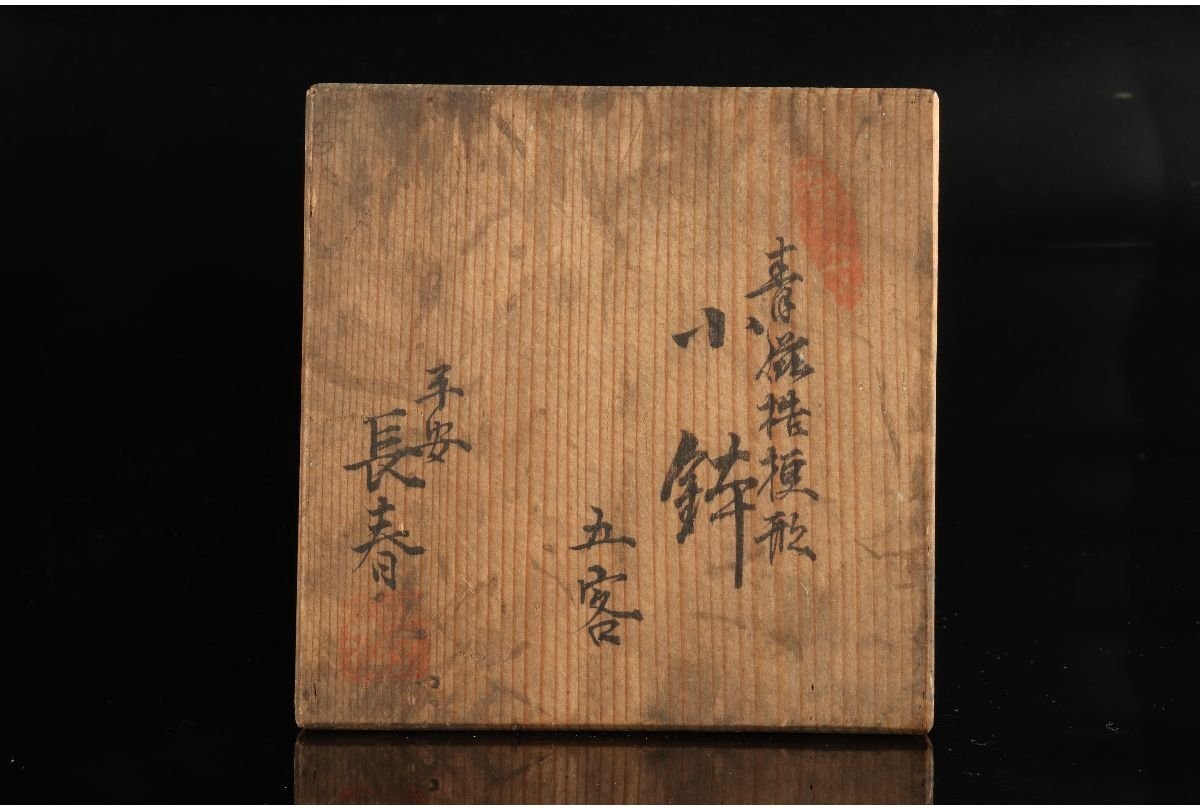 青磁桔梗形
小鉢
五客
平安
長春